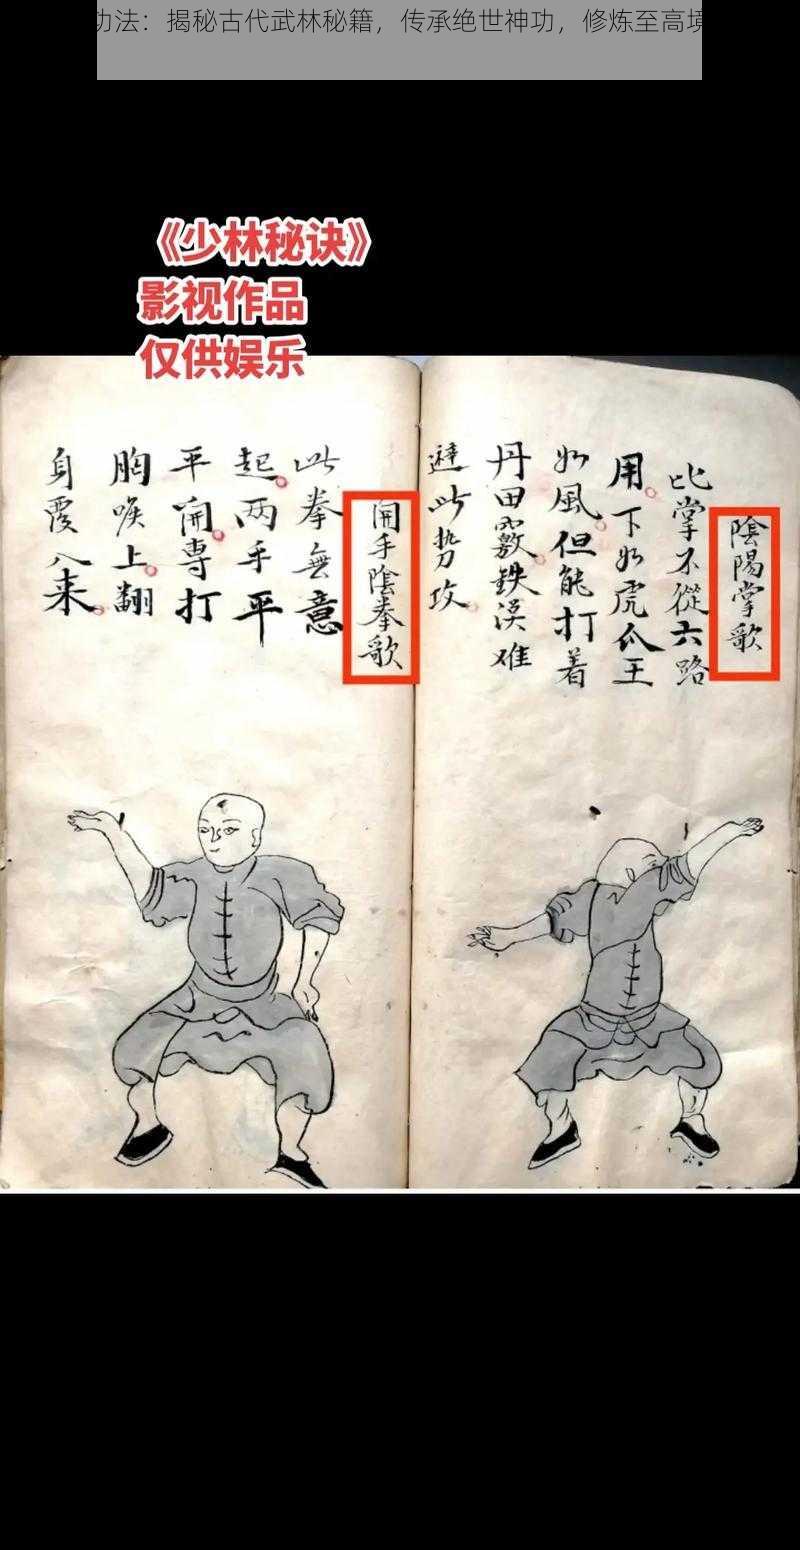 功法：揭秘古代武林秘籍，传承绝世神功，修炼至高境
《少林秘诀》
影视作品
仅供娱乐
陰陽掌歌
比掌不從六路
用。下如虎爪王
如風。但能打着
丹田竅。鉄漢难
避此势攻。
開手陰拳歌
此拳無意
起。两手平
平開。専打
胸喉上。翻
身覆入来。